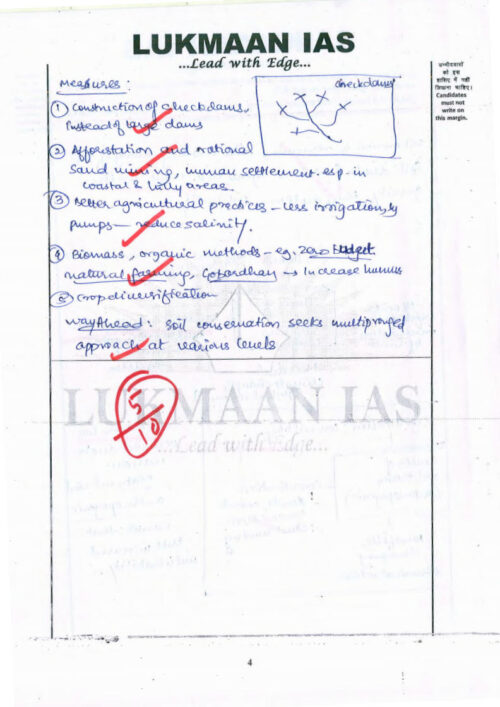 LUKMAAN IAS
...Lead with Edge...
उम्मीदवारों
को इस
हाशिए में नहीं
लिखना चाहिए।
Candidates
must not
write on
this margin.
Measures :
checkdams
① Construction of checkdams,
instead of large dams
② Afforestation and rational
sand mining, human settlement. esp. in
coastal & hilly areas.
③ Better agricultural practices - less irrigation by
pumps - reduce salinity.
④ Biomass, organic methods - eg. Zero budget
natural farming, Gobardhan → Increase humus
⑤ Crop diversification
Way Ahead : Soil conservation seeks multipronged
approach at various levels
5/10
LUKMAAN IAS
...Lead with Edge...
4